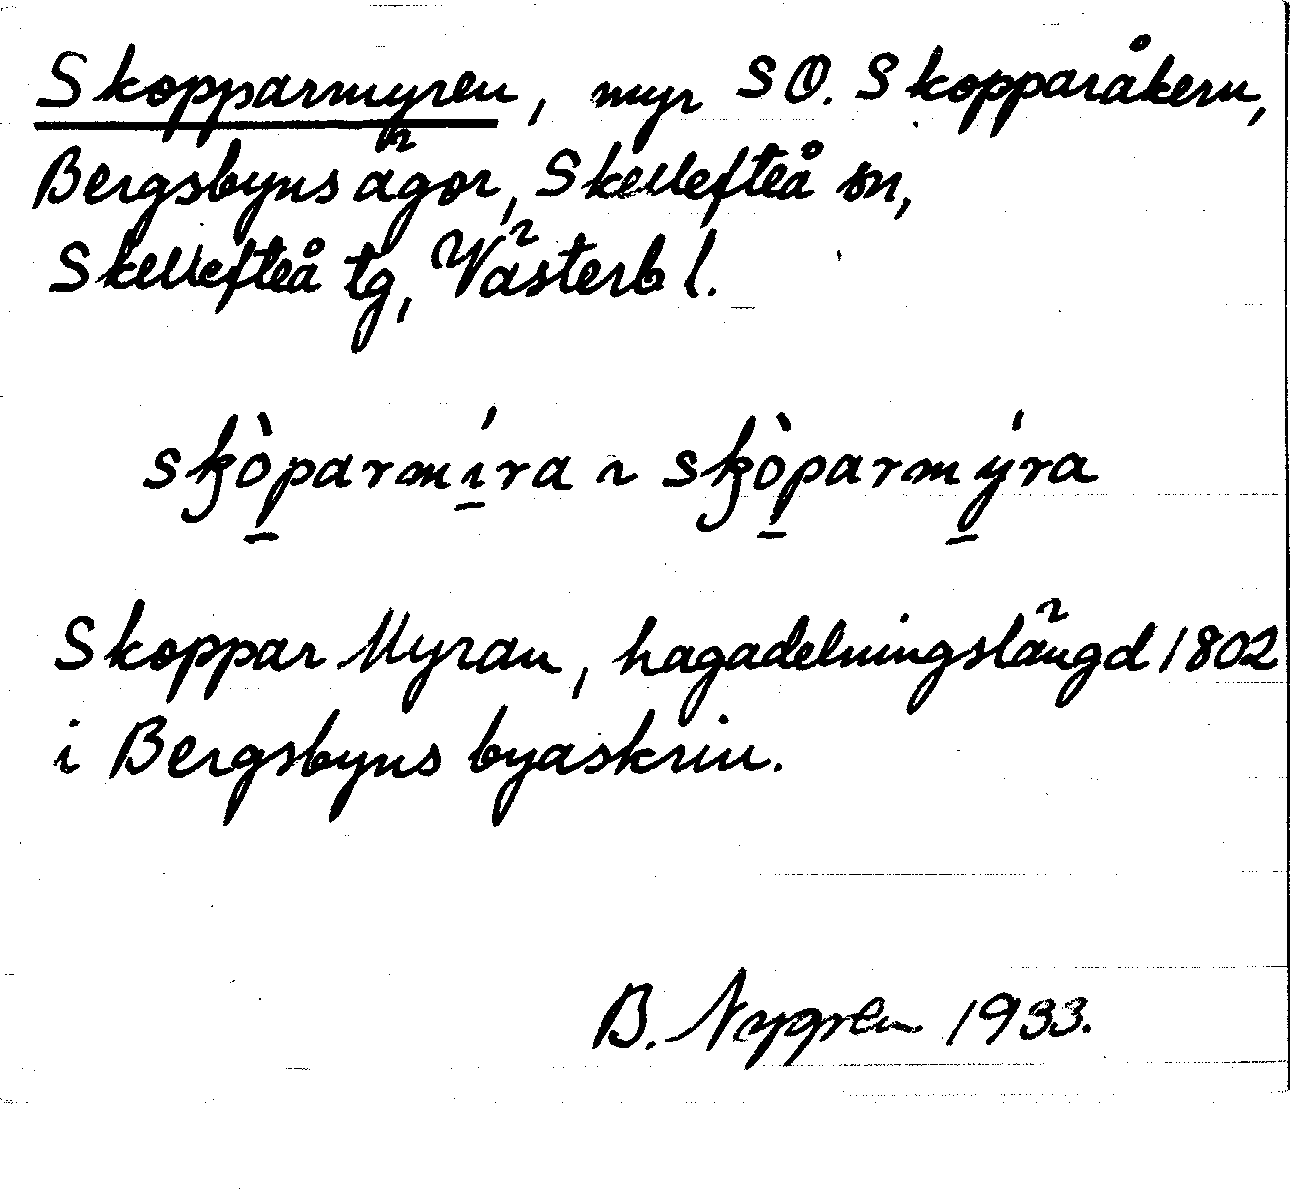 Skopparmyren, myr SO. Skopparåkern,
Bergsbyns ägor, Skellefteå sn,
Skellefteå tg, Västerb l.
skò̱parmí̱ra ~ skò̱parmý̱ra
Skoppar Myran, hagadelningslängd 1802
i Bergsbyns byaskrin.
B. Nygren 1933.